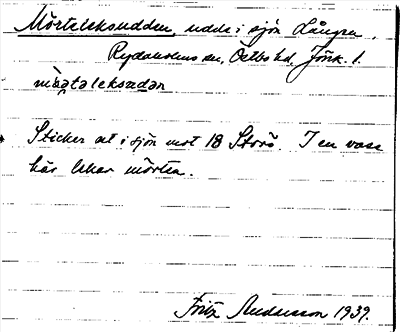 Mörtaleksudden, udde i sjön Lången.
Rydaholms sn, Östbo hd, Jönk. l.
mäṣtaleksudən
Sticker ut i sjön mot 18 Storö. I en vass
här leker mörten.
Fritz Andersson 1939.